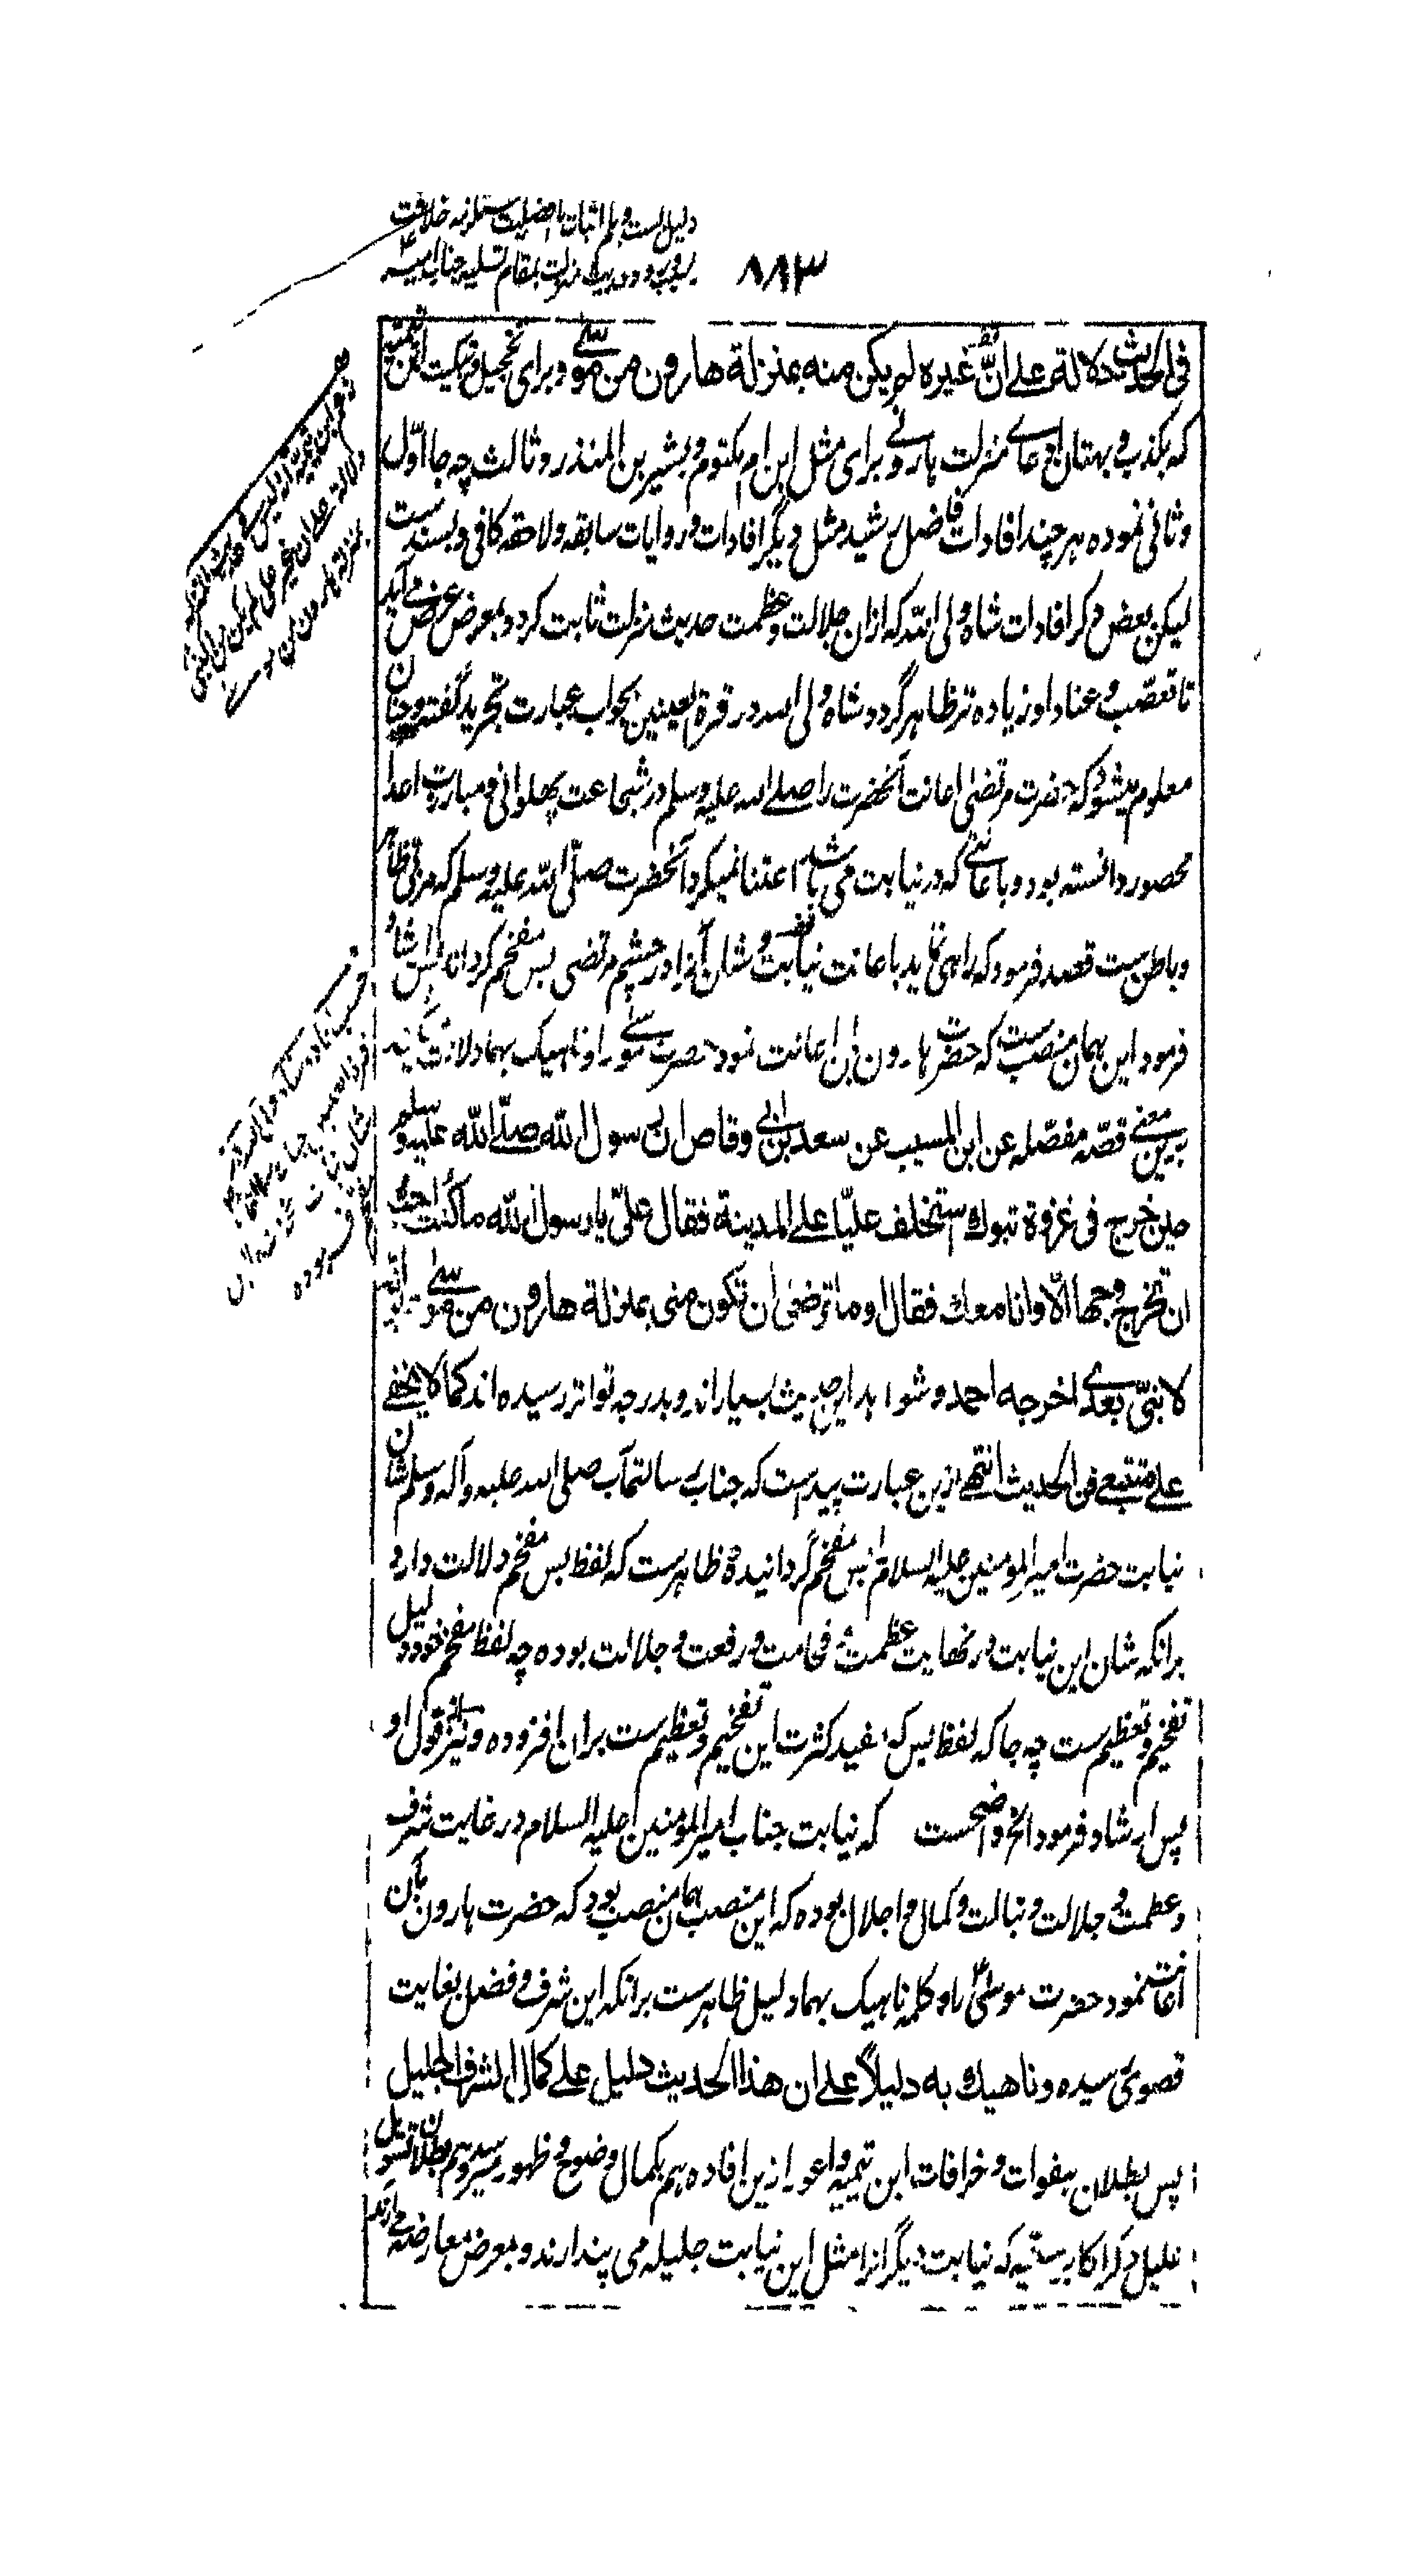 ۸۸۳
دلیل است و هم اثبات افضلیت خلافت
منزلت بمقام تسلیه جناب امیر
فی الحدیث دلالة علی انّ غیره لم یکن منه بمنزلة هارون من موسی و برای تخجیل و تبکیت ابن تیمیه
که بکذب و بهتان ادعای منزلت هارونی برای مثل ابن ام مکتوم و بشیر بن المنذر و ثالث چه جا اوّل
و ثانی نموده هر چند افادات فاضل رشید مثل دیگر افادات و روایات سابقه و لاحقه کافی و بسندست
لیکن بعض دگر افادات شاه ولی الله که ازان جلالت و عظمت حدیث منزلت ثابت گردد بمعرض عرض می آید
تا تعصّب و عناد او زیاده تر ظاهر گردد شاه ولی الله در قرة العینین بجواب عبارت تجرید گفته و چنان
معلوم میشود که حضرت مرتضی اعانت آنحضرت را صلی الله علیه وسلم در شجاعت پهلوانی و مبارزت اعدا
محصور دانسته بود و باعانتی که در نیابت می باشد اعتنا نمیکرد آنحضرت صلّی الله علیه وسلم که مربّی ظاهر
و باطن ست قصد فرمود که راهی نماید باعانت نیابت و شان آنرا در چشم مرتضی بس مفخم گرداند پس ارشاد
فرمود این همان منصب ست که حضرت هارون بآن اعانت نمود حضرت موسی را و ناهیک بهما دلالة
برین معنی قصّه مفصّله عن ابن المسیب عن سعد بن ابی وقاص ان رسول الله صلّی الله علیه وسلم
حین خرج فی غزوة تبوک استخلف علیّا علی المدینة فقال علیّ یا رسول الله ما کنت احب
ان تخرج وجها الّا وانا معک فقال او ما ترضی ان تکون منی بمنزلة هارون من موسی غیر انه
لا نبیّ بعدی اخرجه احمد و شواهد این حدیث بسیار اند و بدرجه تواتر رسیده اند کما لا یخفی
علی متتبعی فن الحدیث انتهی ازین عبارت پیداست که جناب رسالتمآب صلی الله علیه و آله وسلم شان
نیابت حضرت امیر المومنین علیه السلام را بس مفخم گردانیده و ظاهرست که لفظ بس مفخم دلالت دارد
برانکه شان این نیابت در نهایت عظمت و فخامت و رفعت و جلالت بوده چه لفظ مفخم خود دلیل
تفخیم و تعظیم ست چه جا که لفظ بس که مفید کثرت این تفخیم و تعظیم ست بران افزوده و نیز از قول او
پس ارشاد فرمود الخ واضحست که نیابت جناب امیر المؤمنین علیه السلام در غایت شرف
و عظمت و جلالت و نبالت و کمال و اجلال بوده که این منصب همان منصب بود که حضرت هارون بآن
اعانت نمود حضرت موسی را و کلمه ناهیک بهما دلیل ظاهرست برانکه این شرف و فضل بغایت
قصوی رسیده و ناهیک به دلیلاً علی ان هذا الحدیث دلیل علی کمال الشرف الجلیل
پس بطلان هفوات و خرافات ابن تیمیه و اعور ازین افاده هم بکمال وضوح و ظهور رسید و هم بطلان تسویل
علیل دگر اکابر سنّیه که نیابت دیگرانرا مثل این نیابت جلیله می پندارند و بمعرض معارضه می آرند
دلالة علی ان غیر علی لم یکن من النبی
بمنزلة هارون من موسی